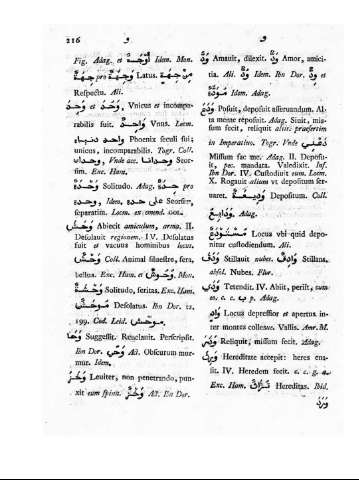 216 و و
Fig. Adag. et أَوْجَهُ Idem. Mon.
مِنْ جِهَةِ Latus. وُجْهَةٌ pro جِهَةٌ
Respectu. Ali.
وَحَدَ et وَحُدَ, Vnicus et incompa-
rabilis fuit. وَاحِدٌ Vnus. Locm.
واحد دنياه Phoenix seculi sui;
unicus, incomparabilis. Togr. Coll.
وحداه, Vnde acc. وحدانا Seor-
sim. Exc. Ham.
وَحْدَةٌ Solitudo. Adag. حِدَةٌ pro
وحدة, Idem, على حدة Seorsim,
separatim. Locm. ex emend.
وَحَشَ Abiecit amiculum, arma. II.
Desolauit regionem. IV. Desolatus
fuit et vacuus hominibus locus.
وَحْشٌ Coll. Animal siluestre, fera,
bellua. Exc. Ham. et وُحُوشٌ Mon.
وَحْشَةٌ Solitudo, feritas. Exc. Ham.
مُوحِشٌ Desolatus. Ibn Dor. 12,
199. Cod. Leid. موحش.
وَحَا Suggessit. Reuelauit. Perscripsit.
Ibn Dor. وَحْيٌ Ad. Obscurum mur-
mur. Idem.
وَخَزَ Leuiter, non penetrando, pun-
xit cum spina. وَخْزٌ Ad. Ibn Dor.
وَدَّ Amauit, dilexit. وُدٌّ Amor, amici-
tia. Ali. وَدٌّ Idem. Ibn Dor. et وِدٌّ
مَوَدَّةٌ Idem. Adag.
وَدَعَ Posuit, deposuit asseruandum. Al-
ta mente reposuit. Adag. Siuit, mis-
sum fecit, reliquit aliis: praesertim
in Imperatiuo. Togr. Vnde دَعْنِي
Missum fac me. Adag. II. Deposu-
it, pec. mandata. Valedixit. Inf.
Ibn Dor. IV. Custodiuit eum. Locm.
X. Rogauit alium vt depositum ser-
uaret. وَدِيعَةٌ Depositum. Coll.
وَدَايِعُ. Adag.
مُسْتَوْدَعٌ Locus vbi quid depo-
nitur custodiendum. Ali.
وَدَفَ Stillauit nubes. وَادِفٌ Stillans,
absol. Nubes. Flor.
وَدَى Tetendit. IV. Abiit, periit, cum
c. c. ب p. Adag.
وَادٍ Locus depressior et apertus in-
ter montes collesue. Vallis. Amr. M.
وَذَرَ Reliquit, missum fecit. Adag.
وَرِثَ Hereditate accepit: heres eua-
sit. IV. Heredem fecit. c. c. g. a.
Exc. Ham. تُرَاثٌ Hereditas. Ibid.
وَرَدَ